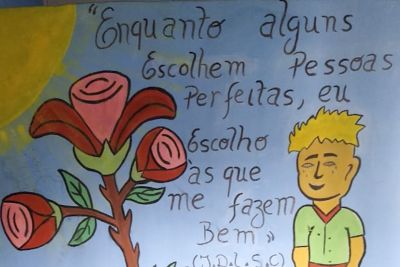 "Enquanto alguns
Escolhem Pessoas
Perfeitas, eu
Escolho
as que
me fazem
Bem"
(J.D.L.S.C)